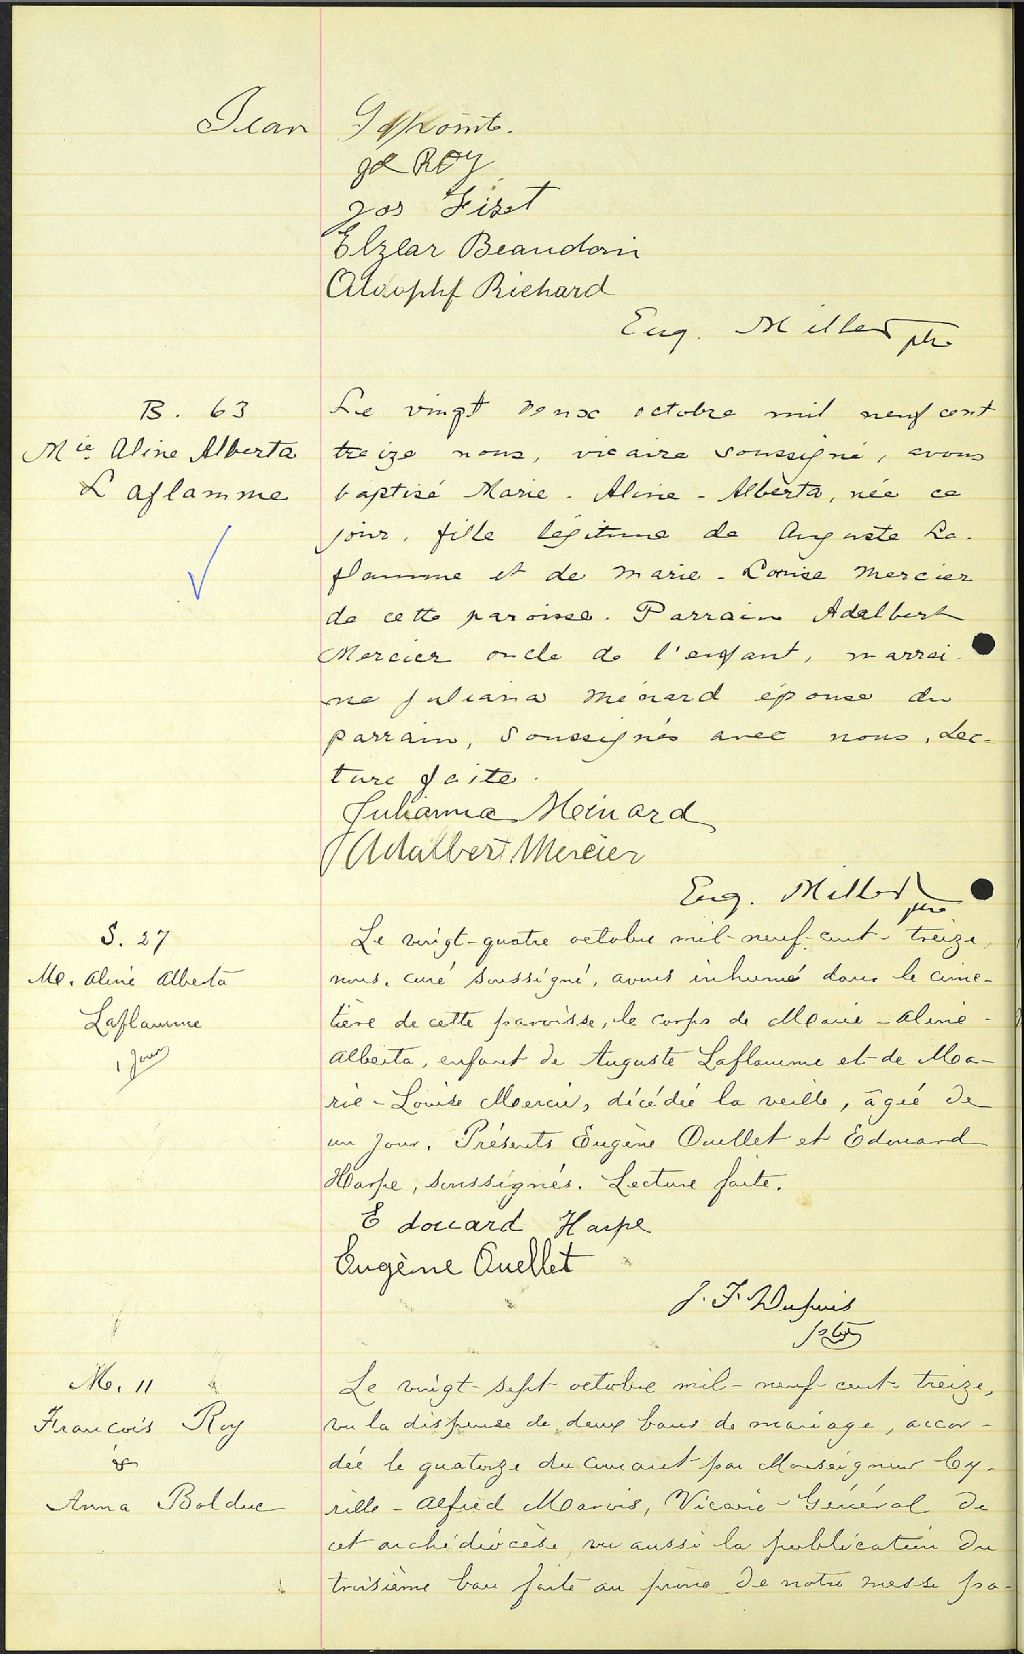 Jean
Jos Roy
Jos Fiset
Elzear Beaudoin
Adolphf Richard
Eug. Miller ptre
B. 63
Mie Aline Alberta
Laflamme
Le vingt deux octobre mil neuf cent
treize nous, vicaire soussigné, avons
baptisé Marie-Aline-Alberta, née ce
jour, fille légitime de Auguste La-
flamme et de Marie-Louise Mercier
de cette paroisse. Parrain Adelbert
Mercier oncle de l'enfant, marrai-
ne Juliana Ménard épouse du
parrain, soussignés avec nous. Lec-
ture faite.
Julianna Meinard
Adalbert Mercier
Eug. Miller ptre
S. 27
M. Aline Alberta
Laflamme
1 jour
Le vingt-quatre octobre mil-neuf-cent-treize,
nous, curé soussigné, avons inhumé dans le cime-
tière de cette paroisse, le corps de Marie-Aline-
Alberta, enfant de Auguste Laflamme et de Ma-
rie-Louise Mercier, décédée la veille, âgée de
un jour. Présents Eugène Ouellet et Edouard
Harpe, soussignés. Lecture faite.
Edouard Harpe
Eugène Ouellet
J. F. Dupuis
ptre
M. 11
François Roy
&
Anna Bolduc
Le vingt-sept octobre mil-neuf-cent-treize,
vu la dispense de deux bans de mariage, accor-
dée le quatorze du courant par Monseigneur Cy-
rille-Alfred Marois, Vicaire-Général de
cet archidiocèse, vu aussi la publication du
troisième ban faite au prône de notre messe pa-